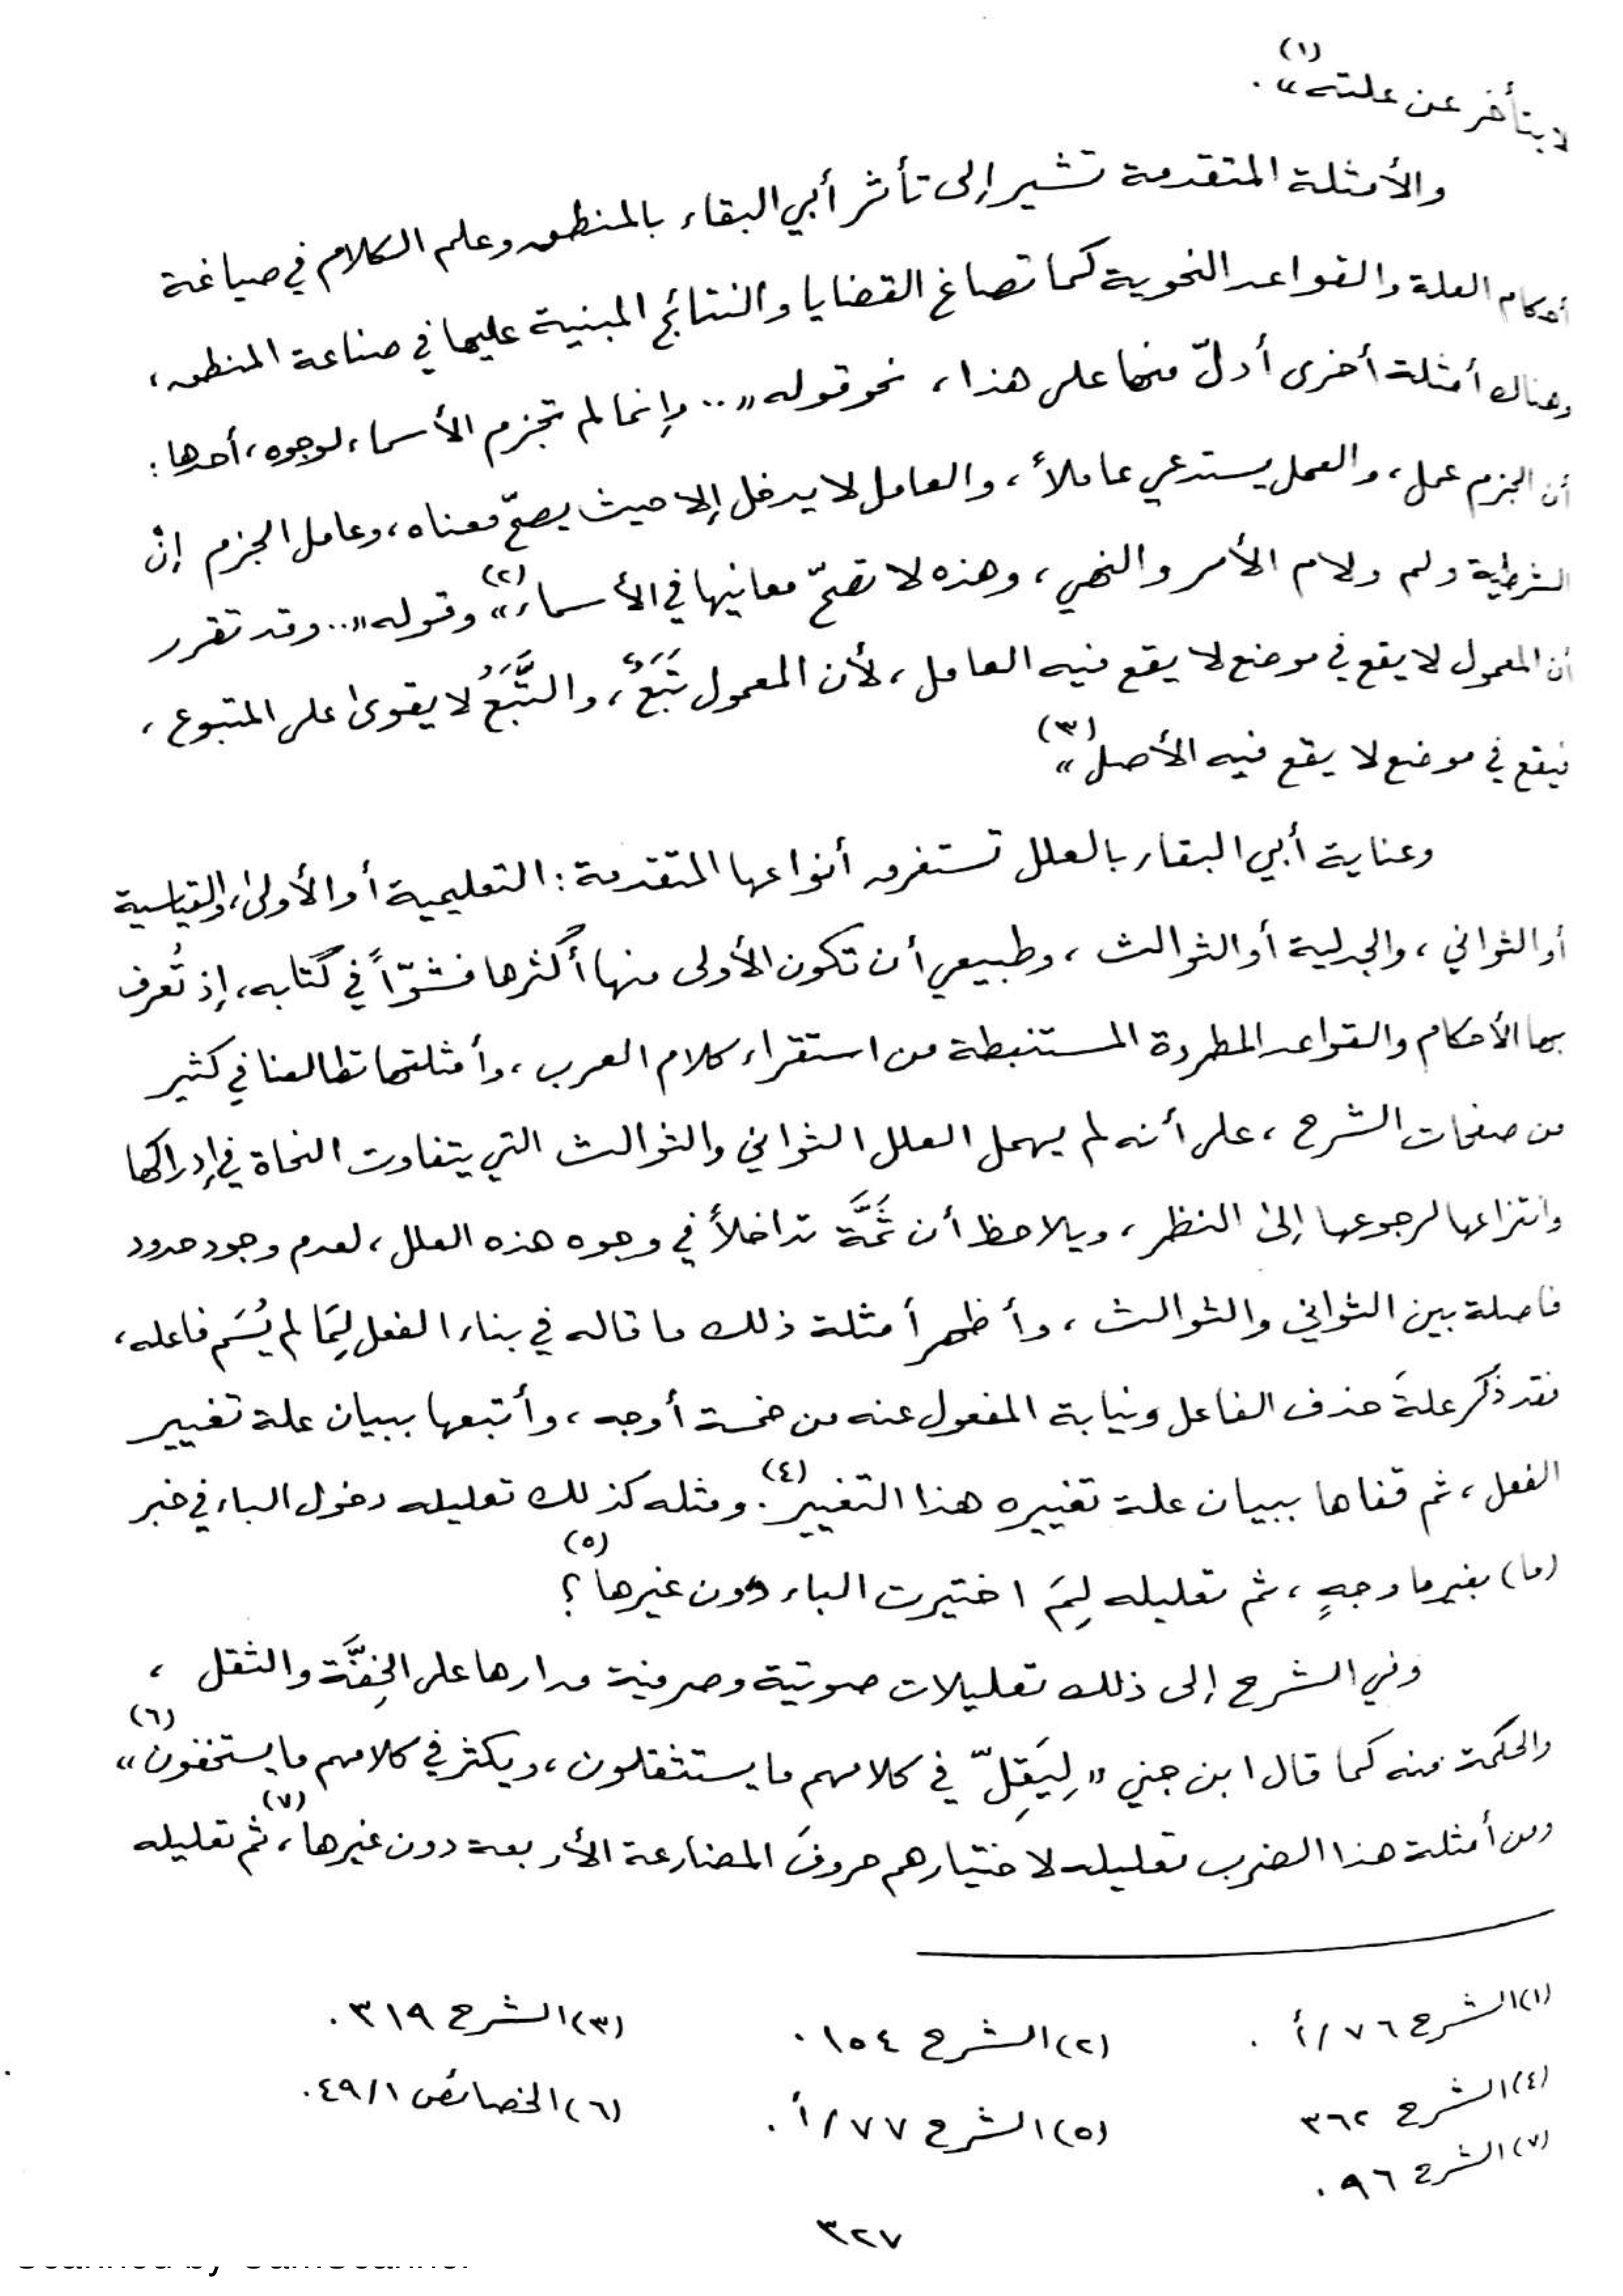 لا يتأخر عن علته»(١) .
والأمثلة المتقدمة تشير إلى تأثر أبي البقاء بالمنطق وعلم الكلام في صياغة
أحكام العلة والقواعد النحوية كما تصاغ القضايا والنتائج المبنية عليها في صناعة المنطق،
وهناك أمثلة أخرى أدلّ منها على هذا، نحو قوله «.. وإنما لم تجزم الأسماء لوجوه، أحدها:
أن الجزم عمل، والعمل يستدعي عاملاً، والعامل لا يدخل إلا حيث يصحّ معناه، وعامل الجزم إنْ
الشرطية ولم ولام الأمر والنهي، وهذه لا تصحّ معانيها في الأسماء»(٢) وقوله «.. وقد تقرر
أن المعمول لا يقع في موضع لا يقع فيه العامل، لأن المعمول تَبَعٌ، والتَّبَعُ لا يقوى على المتبوع،
فيقع في موضع لا يقع فيه الأصل»(٣)
وعناية أبي البقاء بالعلل تستغرق أنواعها المتقدمة: التعليمية أو الأولى، والقياسية
أو الثواني، والجدلية أو الثوالث، وطبيعي أن تكون الأولى منها أكثرها فشوّاً في كتابه، إذ تُعرف
بها الأحكام والقواعد المطردة المستنبطة من استقراء كلام العرب، وأمثلتها تطالعنا في كثير
من صفحات الشرح، على أنه لم يهمل العلل الثواني والثوالث التي يتفاوت النحاة في إدراكها
وانتزاعها لرجوعها إلى النظر، ويلاحظ أن ثَمَّةَ تداخلاً في وجوه هذه العلل، لعدم وجود حدود
فاصلة بين الثواني والثوالث، وأظهر أمثلة ذلك ما قاله في بناء الفعل لِمَا لم يُسَم فاعله،
فقد ذكر علةَ حذف الفاعل ونيابة المفعول عنه من خمسة أوجه، وأتبعها ببيان علة تغيير
الفعل، ثم قفاها ببيان علة تغييره هذا التغيير(٤). ومثله كذلك تعليله دخول الباء في خبر
(ما) بغير ما وجهٍ، ثم تعليله لِمَ اختيرت الباء دون غيرها(٥)؟
وفي الشرح إلى ذلك تعليلات صوتية وصرفية مدارها على الخِفَّة والثقل ،
والحكمة منه كما قال ابن جني «لِيَقِلّ في كلامهم ما يستثقلون، ويكثر في كلامهم ما يستخفون»(٦)
ومن أمثلة هذا الضرب تعليله لاختيارهم حروفَ المضارعة الأربعة دون غيرها(٧)، ثم تعليله
(١) الشرح ٧٦/أ .
(٢) الشرح ١٥٤ .
(٣) الشرح ٣١٩ .
(٤) الشرح ٣٦٢
(٥) الشرح ٧٧/أ .
(٦) الخصائص ٤٩/١ .
(٧) الشرح ٩٦ .
٣٢٧